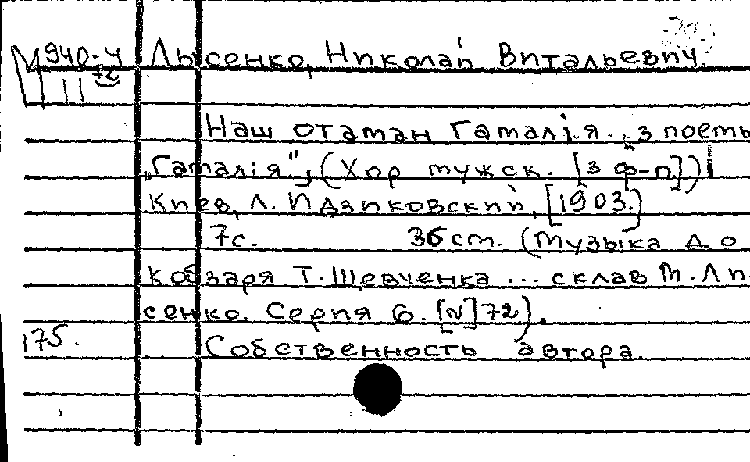 М 940-4 Лысенко, Николай Витальевич.
III 72
Наш отаман Гамалія... з поеми
„Гамалія", (Хор мужск. [з ф-п])
Киев, Л. Идзиковский, [1903.]
7с. 36 cm. (Музыка до
кобзаря Т. Шевченка ... склав М. Ли-
сенко. Серия 6. [N] 72).
175. Собственность автора.